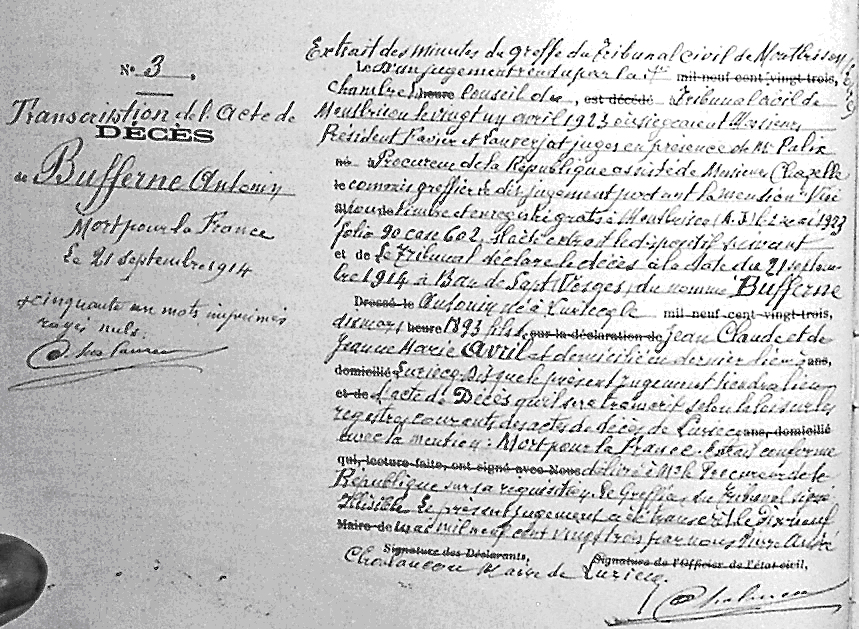 N° 3
Transcription de l'acte de
DÉCÈS
de Bufferne Antonin
Mort pour la France
Le 21 septembre 1914
cinquante un mots imprimés
rayés nuls.
Extrait des minutes du greffe du Tribunal civil de Montbrison
Le D'un jugement rendu par la 1re mil neuf cent vingt trois,
chambre heure Conseil du , est décédé Tribunal civil de
Montbrison le vingt un avril 1923 où siégeaient Messieurs
Président Favier et juges en présence de Mr Palix
né à Procureur de la République assisté de Monsieur Chapelle
le commis greffier du dit jugement portant la mention: Visé
pour timbre et enregistré gratis à Montbrison (A.J) le 2 mai 1923
folio 90 case 602. Il a été extrait le dispositif suivant
et de Le Tribunal déclare le décès à la date du 21 septem-
bre 1914 à Ban de Sapt, Vosges, du nommé Bufferne
Dressé le Antonin né à Luriecq le mil neuf cent vingt-trois,
dix mars heure 1893 fils sur la déclaration de Jean Claude et de
Jeanne Marie Avril et domicilié en dernier lieu à ans,
domicilié Luriecq. Dit que le présent jugement tiendra lieu
et de d'acte de Décès qu'il sera transcrit selon la loi sur les
registres courants des actes de décès de Luriecq ans, domicilié
avec la mention: Mort pour la France. Extrait conforme
qui, lecture faite, ont signé avec Nous délivré à Mr le Procureur de la
République sur sa réquisition. Le Greffier du Tribunal signé
Illisible. Le présent jugement a été transcrit le Dix neuf
Maire de mai mil neuf cent vingt trois par nous Pierre
Signature des Déclarants, Signature de l'Officier de l'état civil,
Maire de Luriecq.